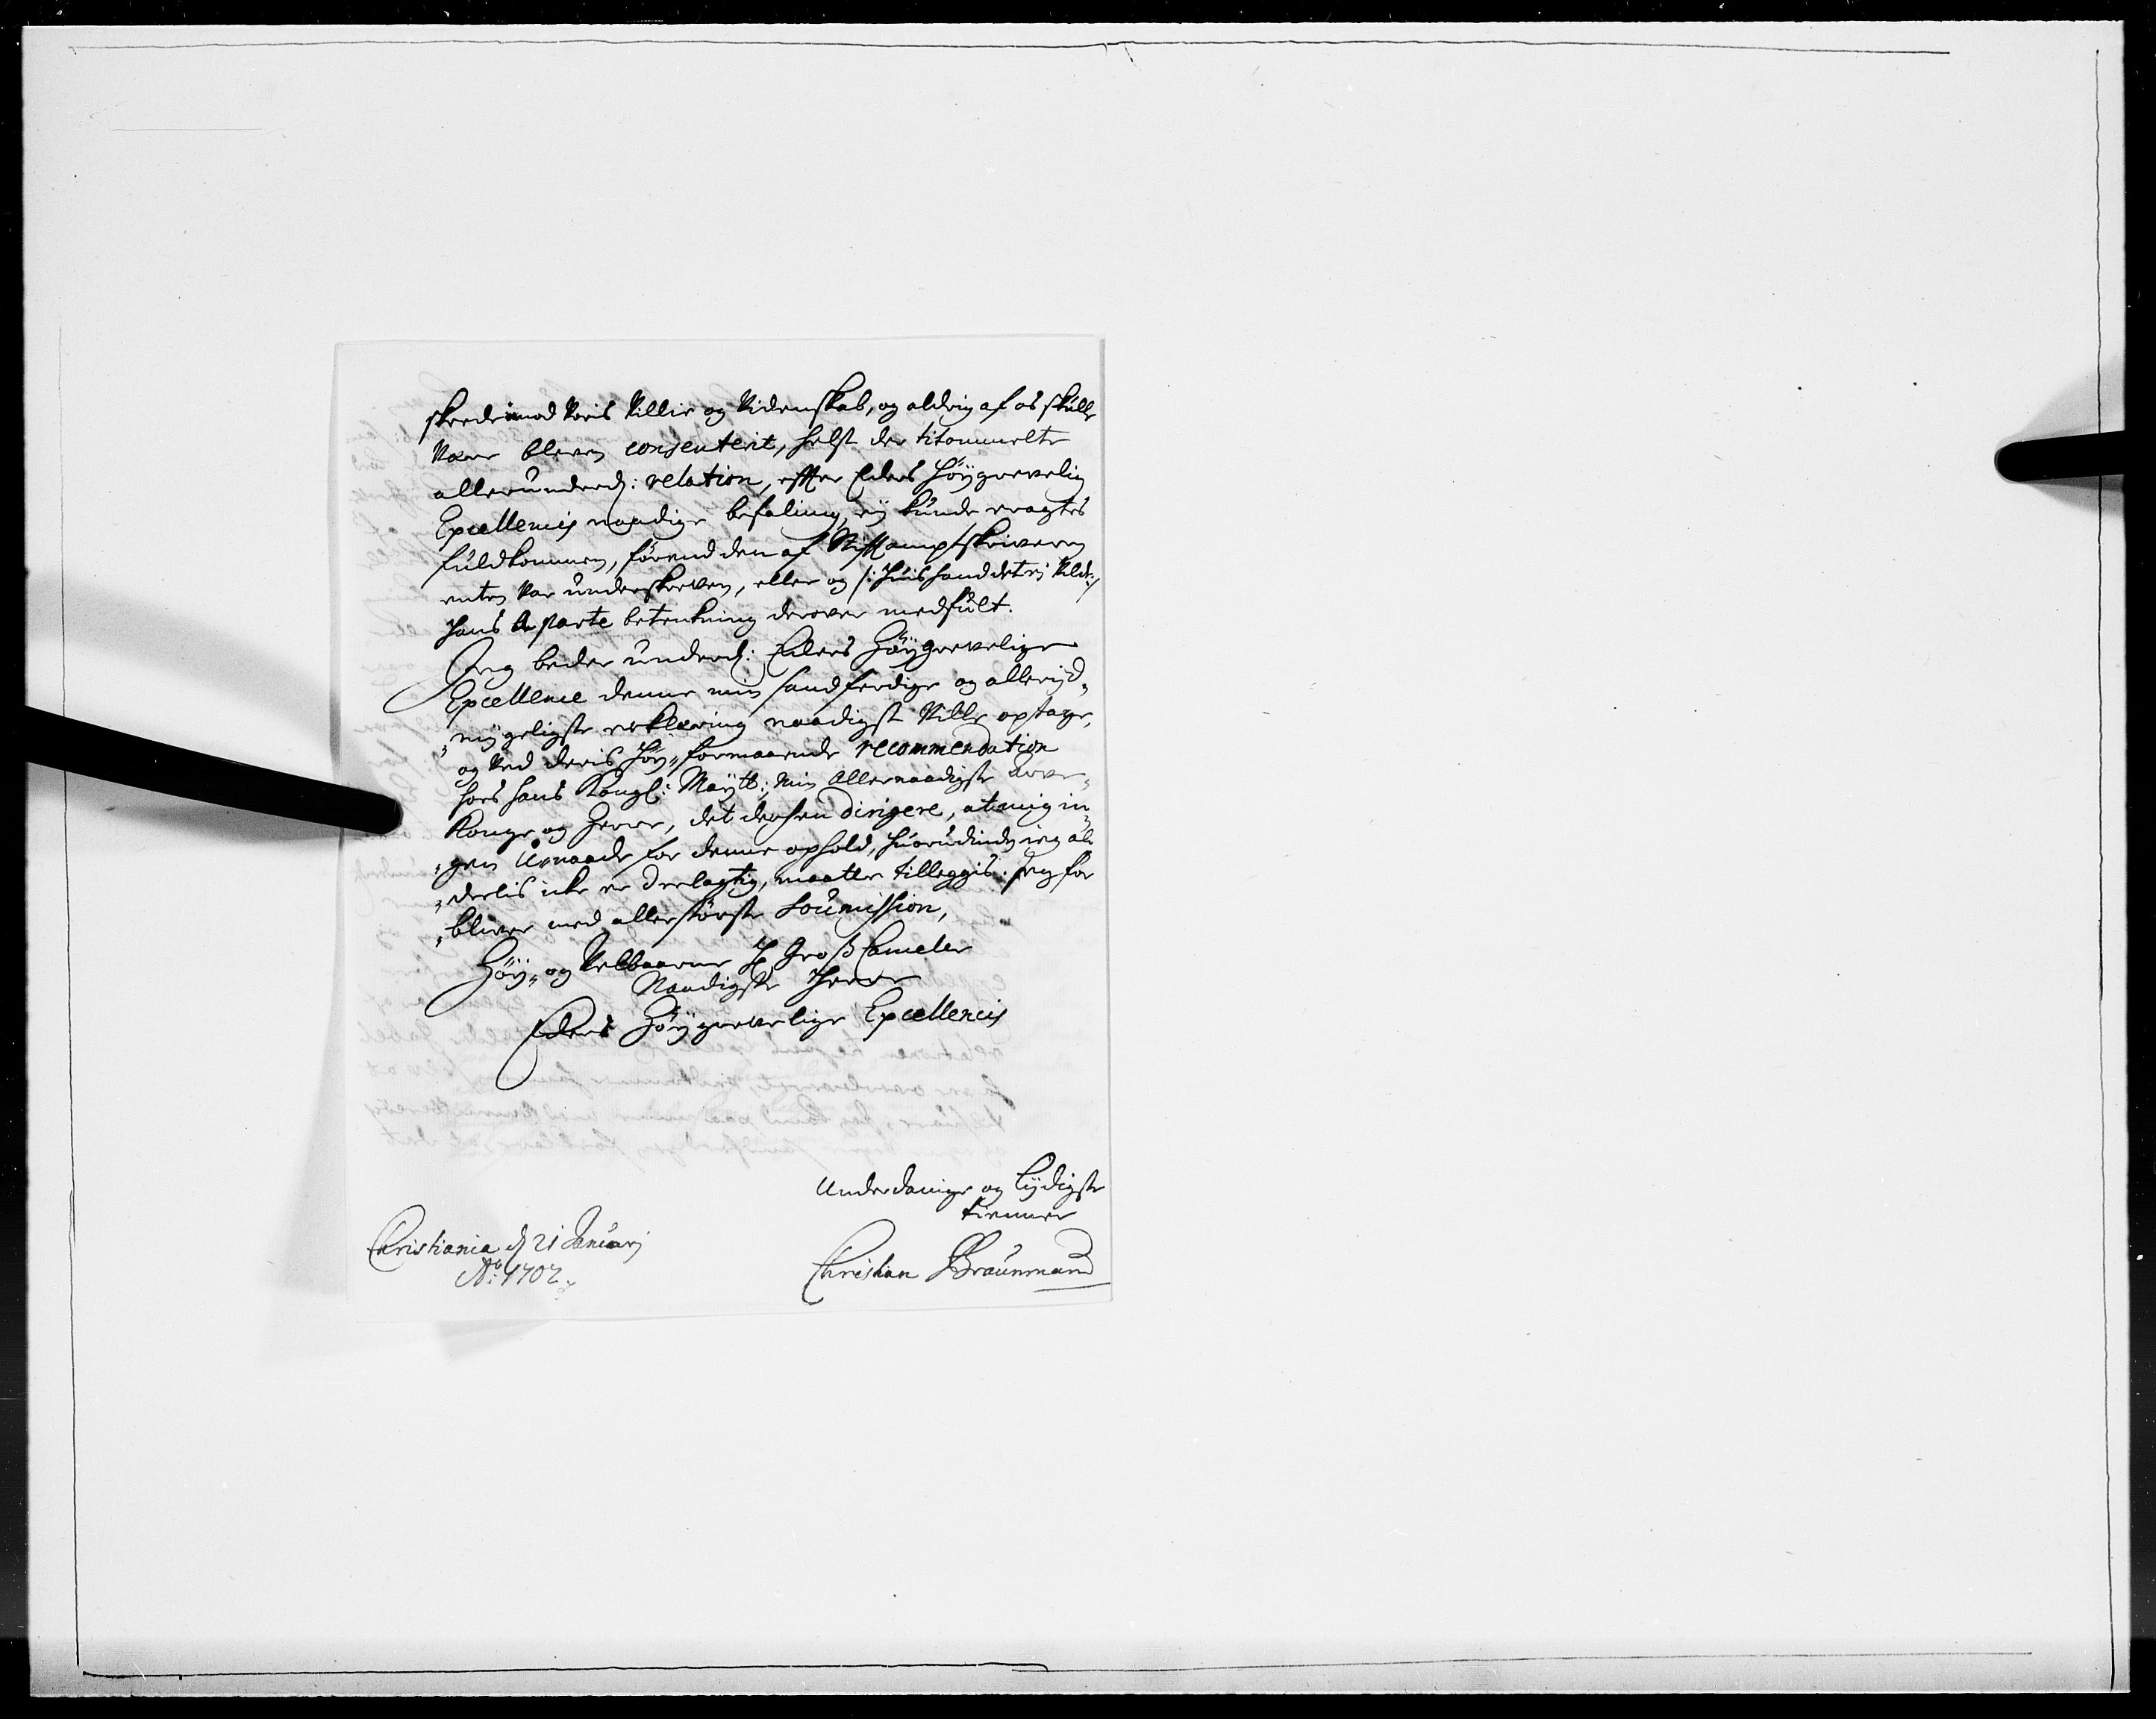 skeed imod voris villie og videnskab, og aldrig af os skulle
være bleven consenterit, helst der titommelte
allerunderd: relation, effter Eders Høygrevelig
Excellencis naadige befaling, ej kunde eragtes
fuldkommen, førend den af Stifftamptskriveren
enten var underskreven, eller og /: huis hand det ej vilde :/
hans à parte betenkning derover medfult.
Jeg beder underd: Eders Høygrevelige
Excellence denne min sandferdige og alleryd„
„mygeligste erklæring naadigst ville optage,
og ved deris Høy„formaaende recommendation
hos hans Kongl: Maytt:, min allernaadigste Arve„
Konge og Herre, det derhen dirigere, at mig in„
„gen Unaade for denne ophold, huorudinden jeg al„
„delis icke er deelagtig, maatte tilleggis. Jeg for
„bliver med allerstørste soumission,
Høy„ og Velbaarne H Groß Canceler
Naadigste Herre
Eders Høygrevelige Excellencis
Underdanige og lydigste
tienner
Christian Braunmand
Christiania d 21 Januarj
Ao: 1702